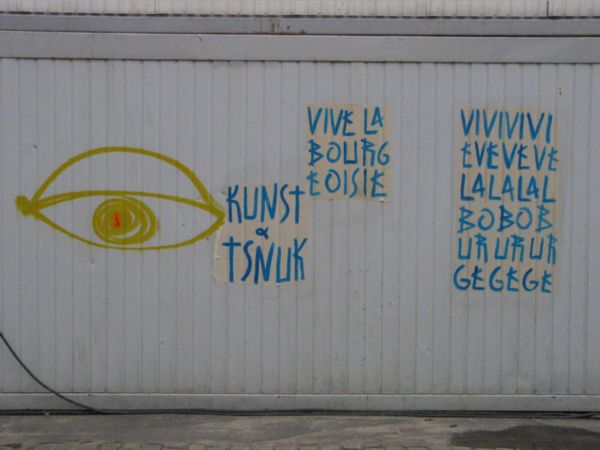 KUNST
&
TSNUK
VIVE LA
BOURG
EOISIE
VIVIVIVI
EVEVEVE
LALALAL
BOBOB
URURUR
GEGEGE